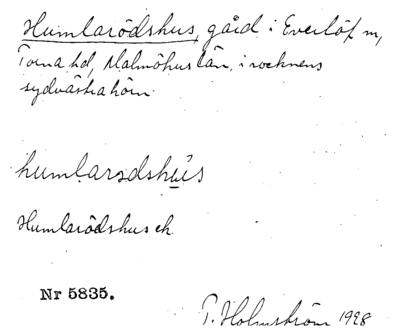 Humlarödshus, gård i Everlöf sn,
Torna hd, Malmöhus län, i socknens
sydvästra hörn
humlarsdshus
Humlarödshus ek
Nr 5835.
T. Holmström 1928